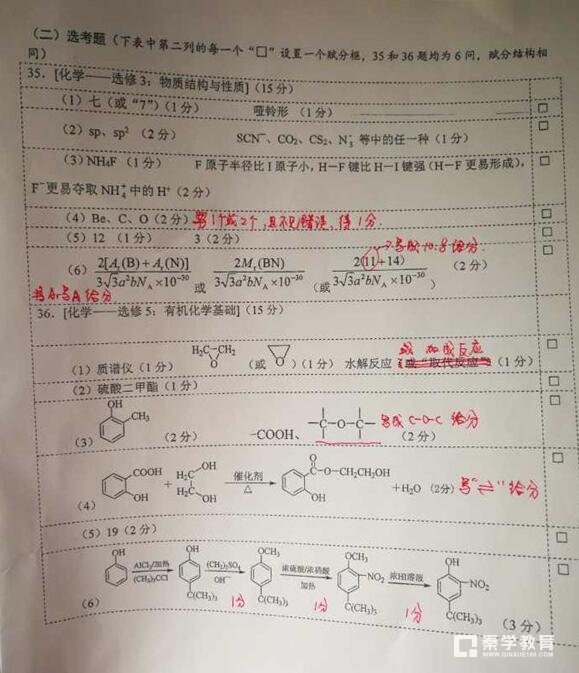 （二）选考题（下表中第二列的每一个“□”设置一个赋分框，35和36题均为6问，赋分结构相
同）
35．[化学——选修3：物质结构与性质]（15分）
（1）七（或“7”）（1分） 哑铃形 （1分）
（2）sp、sp² （2分） SCN⁻、CO₂、CS₂、N₃⁻ 等中的任一种（1分）
（3）NH₄F （1分） F原子半径比I原子小，H－F键比H－I键强（H－F更易形成），
F⁻更易夺取NH₄⁺中的H⁺（2分）
（4）Be、C、O（2分）写1个或2个，且不见错误，得1分
（5）12 （1分） 3（2分）
写成10.8给分
（6）2[Aᵣ(B)+Aᵣ(N)]/3√3a²bN_A×10⁻³⁰ 或 2Mᵣ(BN)/3√3a²bN_A×10⁻³⁰ （或 2(11+14)/3√3a²bN_A×10⁻³⁰ ） （2分）
给分
36．[化学——选修5：有机化学基础]（15分）
或 加成反应
（1）质谱仪（1分） H₂C－CH₂ O （或 O ）（1分） 水解反应（或“取代反应”）（1分）
（2）硫酸二甲酯（1分）
（3） OH CH₃ （2分） -COOH、 －O－ 写成 C-O-C 给分 （2分）
（4） COOH OH + H₂C OH H₂C OH 催化剂 △ O C－O－CH₂CH₂OH OH +H₂O （2分）写“⇌”给分
（5）19（2分）
（6） OH AlCl₃/加热 (CH₃)₃CCl OH C(CH₃)₃ (CH₃)₂SO₄ OH⁻ OCH₃ C(CH₃)₃ 浓硫酸/浓硝酸 加热 OCH₃ NO₂ C(CH₃)₃ 浓HI溶液 OH NO₂ C(CH₃)₃ （3分）
1分 1分 1分
秦学教育
WWW.QINXUE100.COM